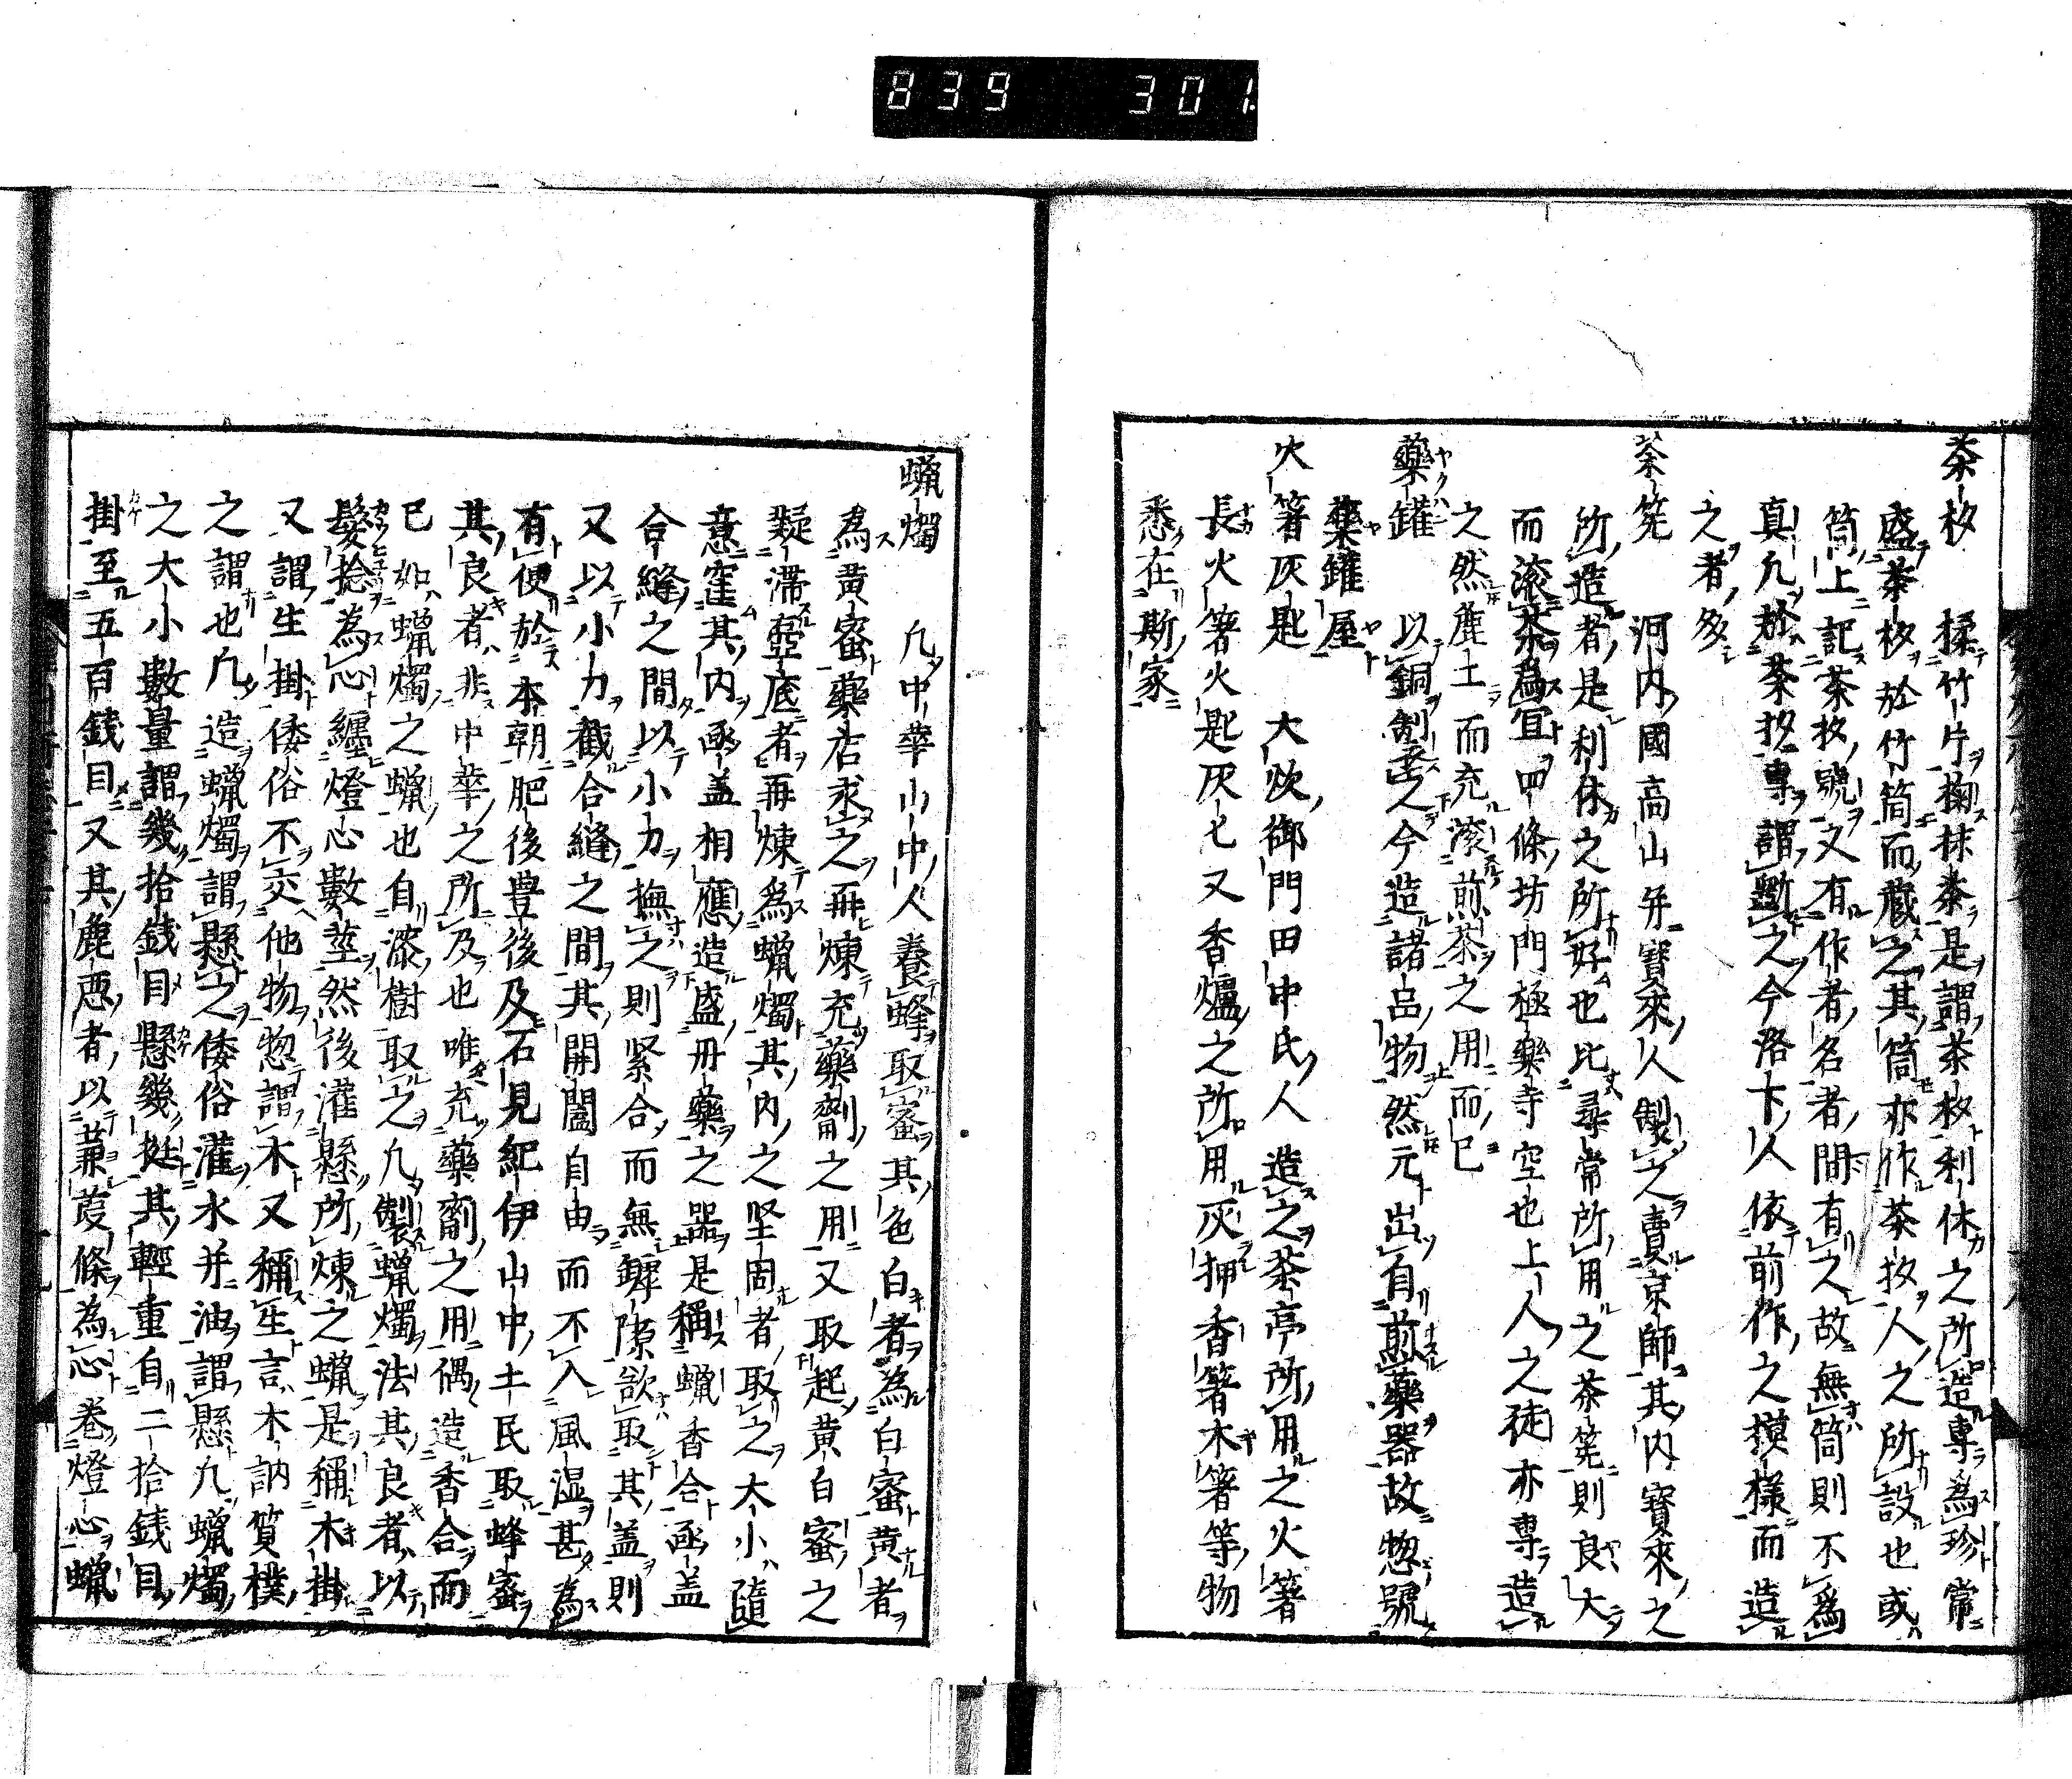 839 301
茶杦 揉竹片掬抹茶是謂茶杦利休之所造專為珍常
盛茶杦於竹筒而藏之其筒亦作茶杦人之所設也或
筒上記茶杦號又有作者名者間有之故無筒則不為
真凡於茶杦專謂斷之今洛下人依前作之摸樣而造
之者多
茶筅 河内國高山并寳來人製之賣京師其内寳來之
所造者是利休之所好也比尋常所用之茶筅則良大
而滚茶為宜四條坊門極樂寺空也上人之徒亦專造
之然麁土而充滚煎茶之用而已
藥鑵 以銅制逐之今造諸品物然元出自煎藥器故惣號
藥鑵屋
火箸灰匙 大炊御門田中氏人造之茶亭所用之火箸
長火箸火匙灰匕又香爐之所用灰押香箸木箸等物
悉在斯家
蠟燭 凡中華山中人養蜂取蜜其色白者為白蜜黄者
為黄蜜藥店求之再煉充藥劑之用又取起黄白蜜之
凝滯壺底者再煉為蠟燭其内之堅固者取之大小隨
意窪其内凾盖相應造盛丹藥之器是稱蠟香合凾盖
合縫之間以小力撫之則緊合而無罅隙欲取其盖則
又以小力截合縫之間其開闔自由而不入風湿甚為
有便於本朝肥後豊後及石見紀伊山中土民取蜂蜜
其良者非中華之所及也唯充藥劑之用偶造香合而
已如蠟燭之蠟也自漆樹取之凡製蠟燭法其良者以
髮捻為心纏燈心數莖然後灌懸所煉之蠟是稱木掛
又謂生掛倭俗不交他物惣謂木又稱生言木訥質樸
之謂也凡造蠟燭謂懸之倭俗灌水并油謂懸凡蠟燭
之大小數量謂幾拾錢目懸幾挺其輕重自二拾錢目
掛至五百錢目又其麁惡者以蒹葭條為心卷燈心蠟